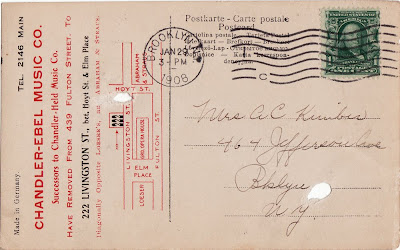 Tel. 2146 Main
CHANDLER-EBEL MUSIC CO.
Successors to Chandler-Held Music Co.
HAVE REMOVED FROM 439 FULTON STREET, TO
222 LIVINGSTON ST., bet. Hoyt St. & Elm Place
Diagonally Opposite Loeser's, and Abraham & Straus.
Made in Germany.
ABRAHAM
& STRAUS
HOYT ST.
LIVINGSTON ST.
222
ORPH. OPERA HOUSE
FULTON ST.
ELM
PLACE
LOESER
Postkarte - Carte postale
Postcard
BROOKLYN
JAN 29
3-PM
1908
C
Mrs A C Kimber
464 Jefferson Ave
Bklyn
N Y